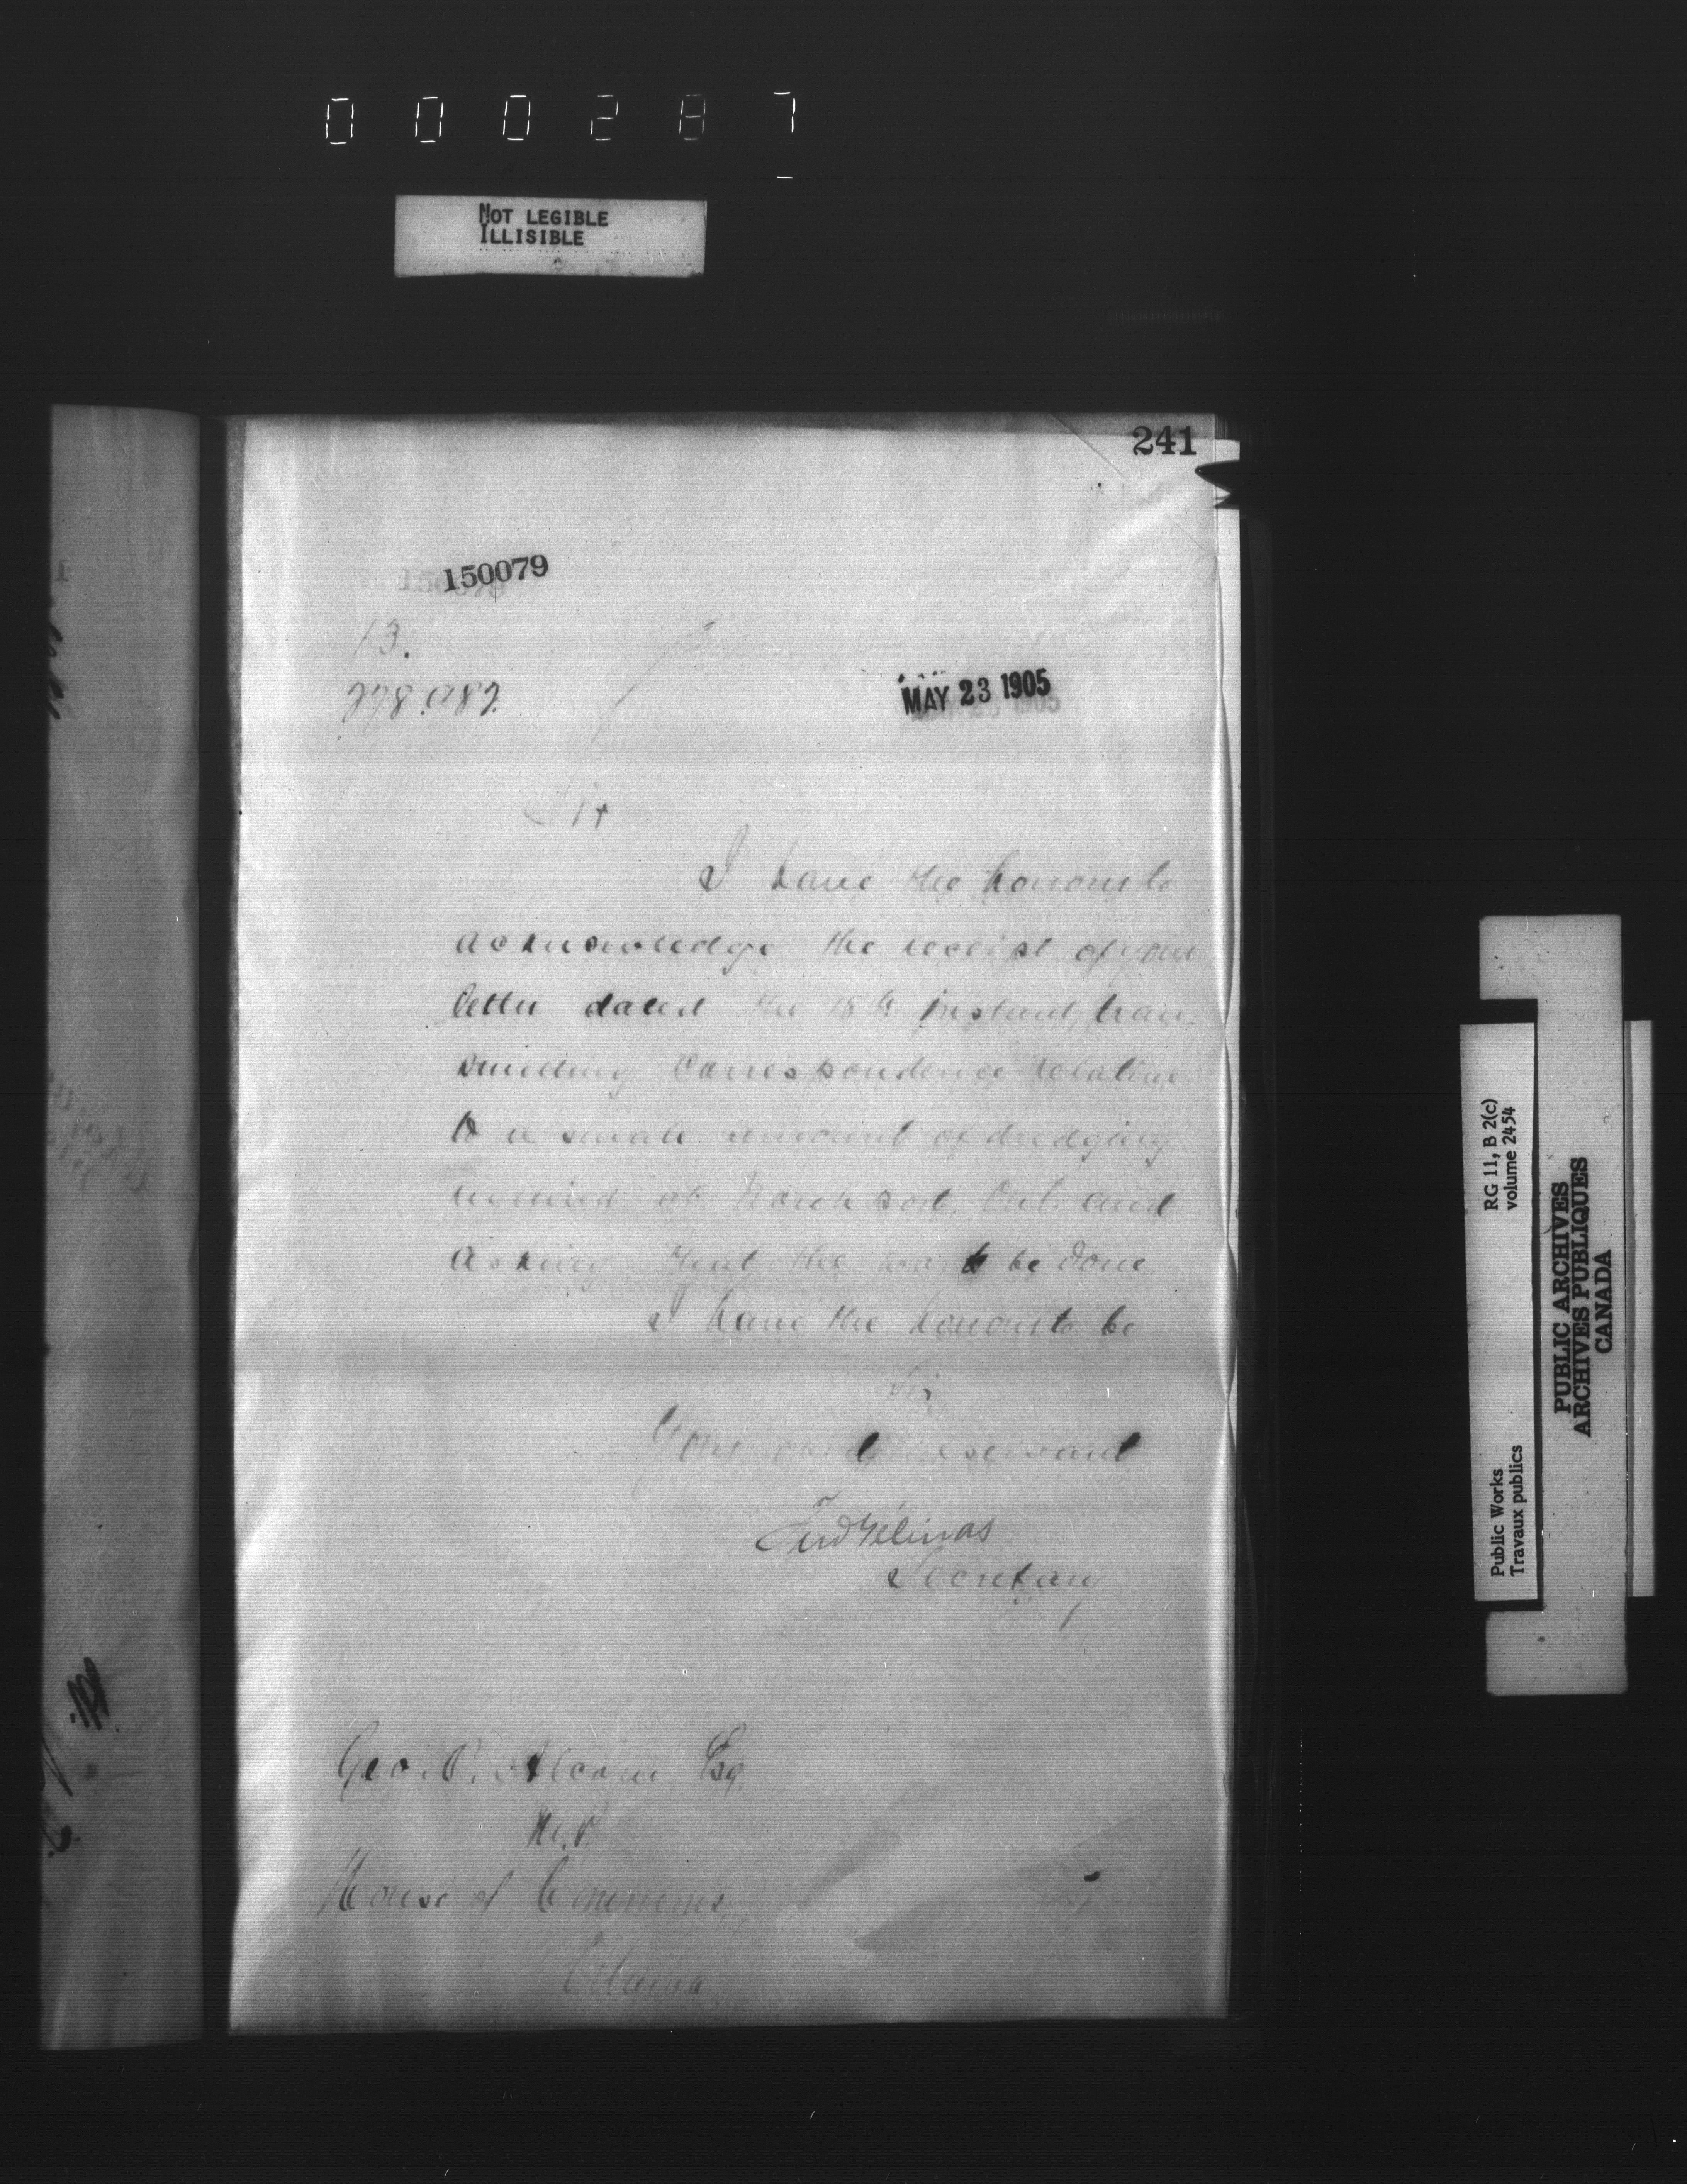 000287
NOT LEGIBLE
ILLISIBLE
241
150079
13.
278.987.
MAY 23 1905
Sir
I have the honour to
acknowledge the receipt of your
letter dated the 18th instant, tran-
smitting correspondence relative
to a small amount of dredging
required at Northport, Ont. and
asking that the work be done.
I have the honour to be
Sir,
Your obedient servant
Fred Gélinas
Secretary
Geo. O. Alcorn, Esq.
M.P.
House of Commons,
Ottawa
RG 11, B 2(c)
volume 2454
Public Works
Travaux publics
PUBLIC ARCHIVES
ARCHIVES PUBLIQUES
CANADA